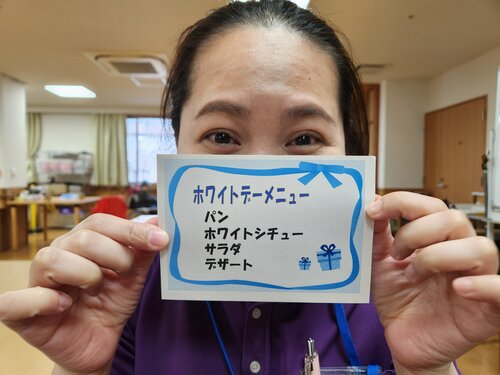 ホワイトデーメニュー
パン
ホワイトシチュー
サラダ
デザート